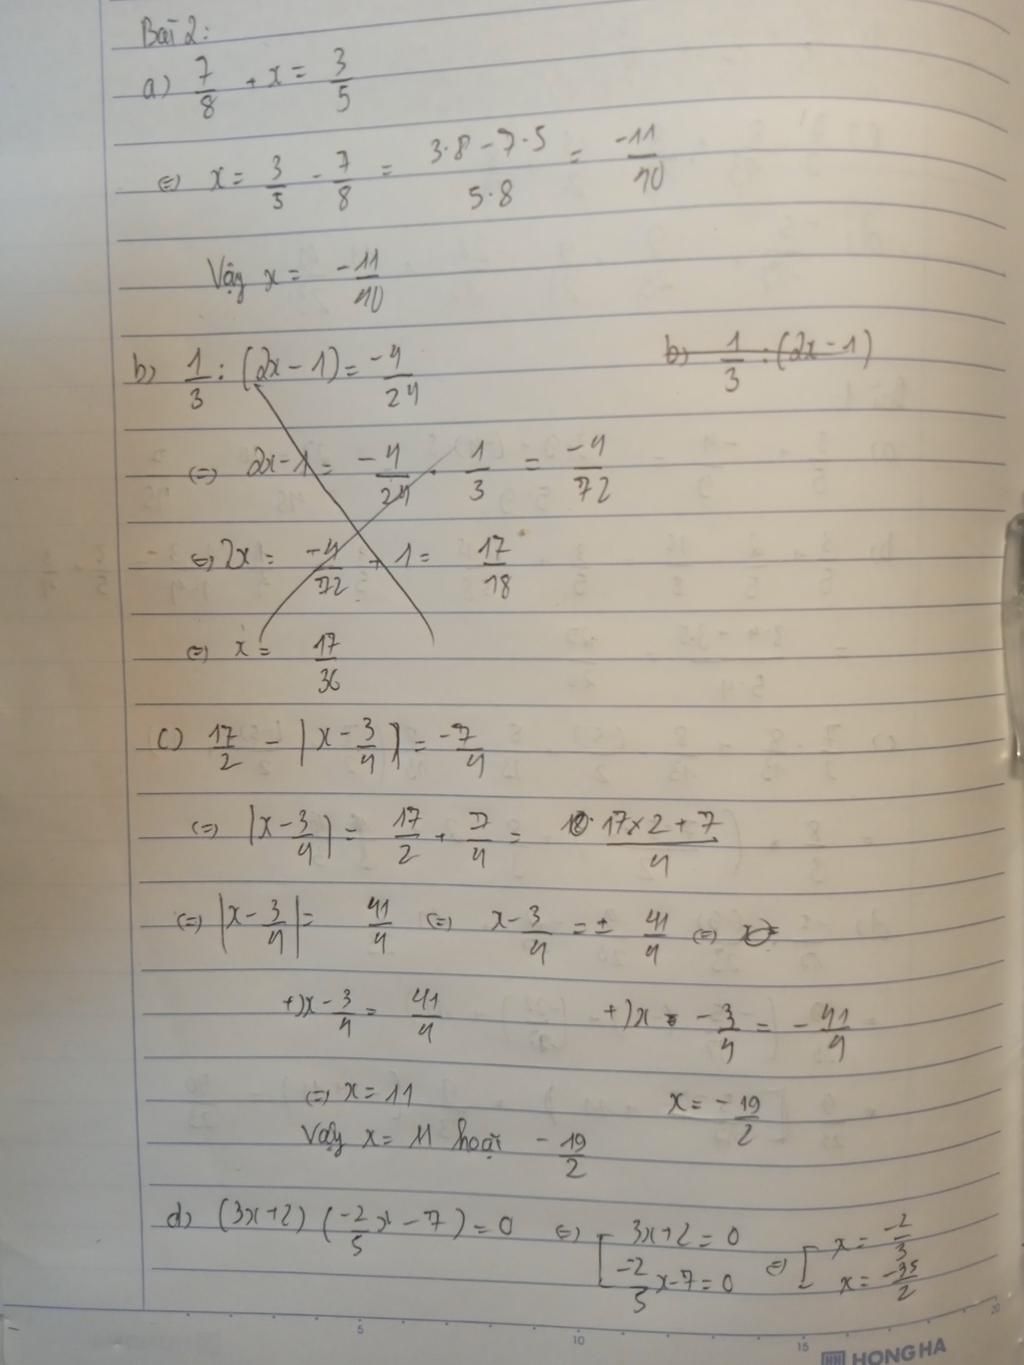 Bài 2:
a) 7/8 + x = 3/5
⇔ x = 3/5 - 7/8 = (3·8 - 7·5)/(5·8) = -11/40
Vậy x = -11/40
b) 1/3 : (2x - 1) = -4/24 b) 1/3 : (2x - 1)
⇔ 2x - 1 = -4/24 · 1/3 = -4/72
⇔ 2x = -4/72 + 1 = 17/18
⇔ x = 17/36
c) 17/2 - |x - 3/4| = -7/4
⇔ |x - 3/4| = 17/2 + 7/4 = (17×2 + 7)/4
⇔ |x - 3/4| = 41/4 ⇔ x - 3/4 = ± 41/4 ⇔
+) x - 3/4 = 41/4 +) x - 3/4 = -41/4
⇔ x = 11 x = -19/2
Vậy x = 11 hoặc -19/2
d) (3x+2) (-2/5 x - 7) = 0 ⇔ [ 3x+2 = 0 ⇔ [ x = -2/3
-2/5 x - 7 = 0 x = -35/2
5 10 15 20
HONG HA